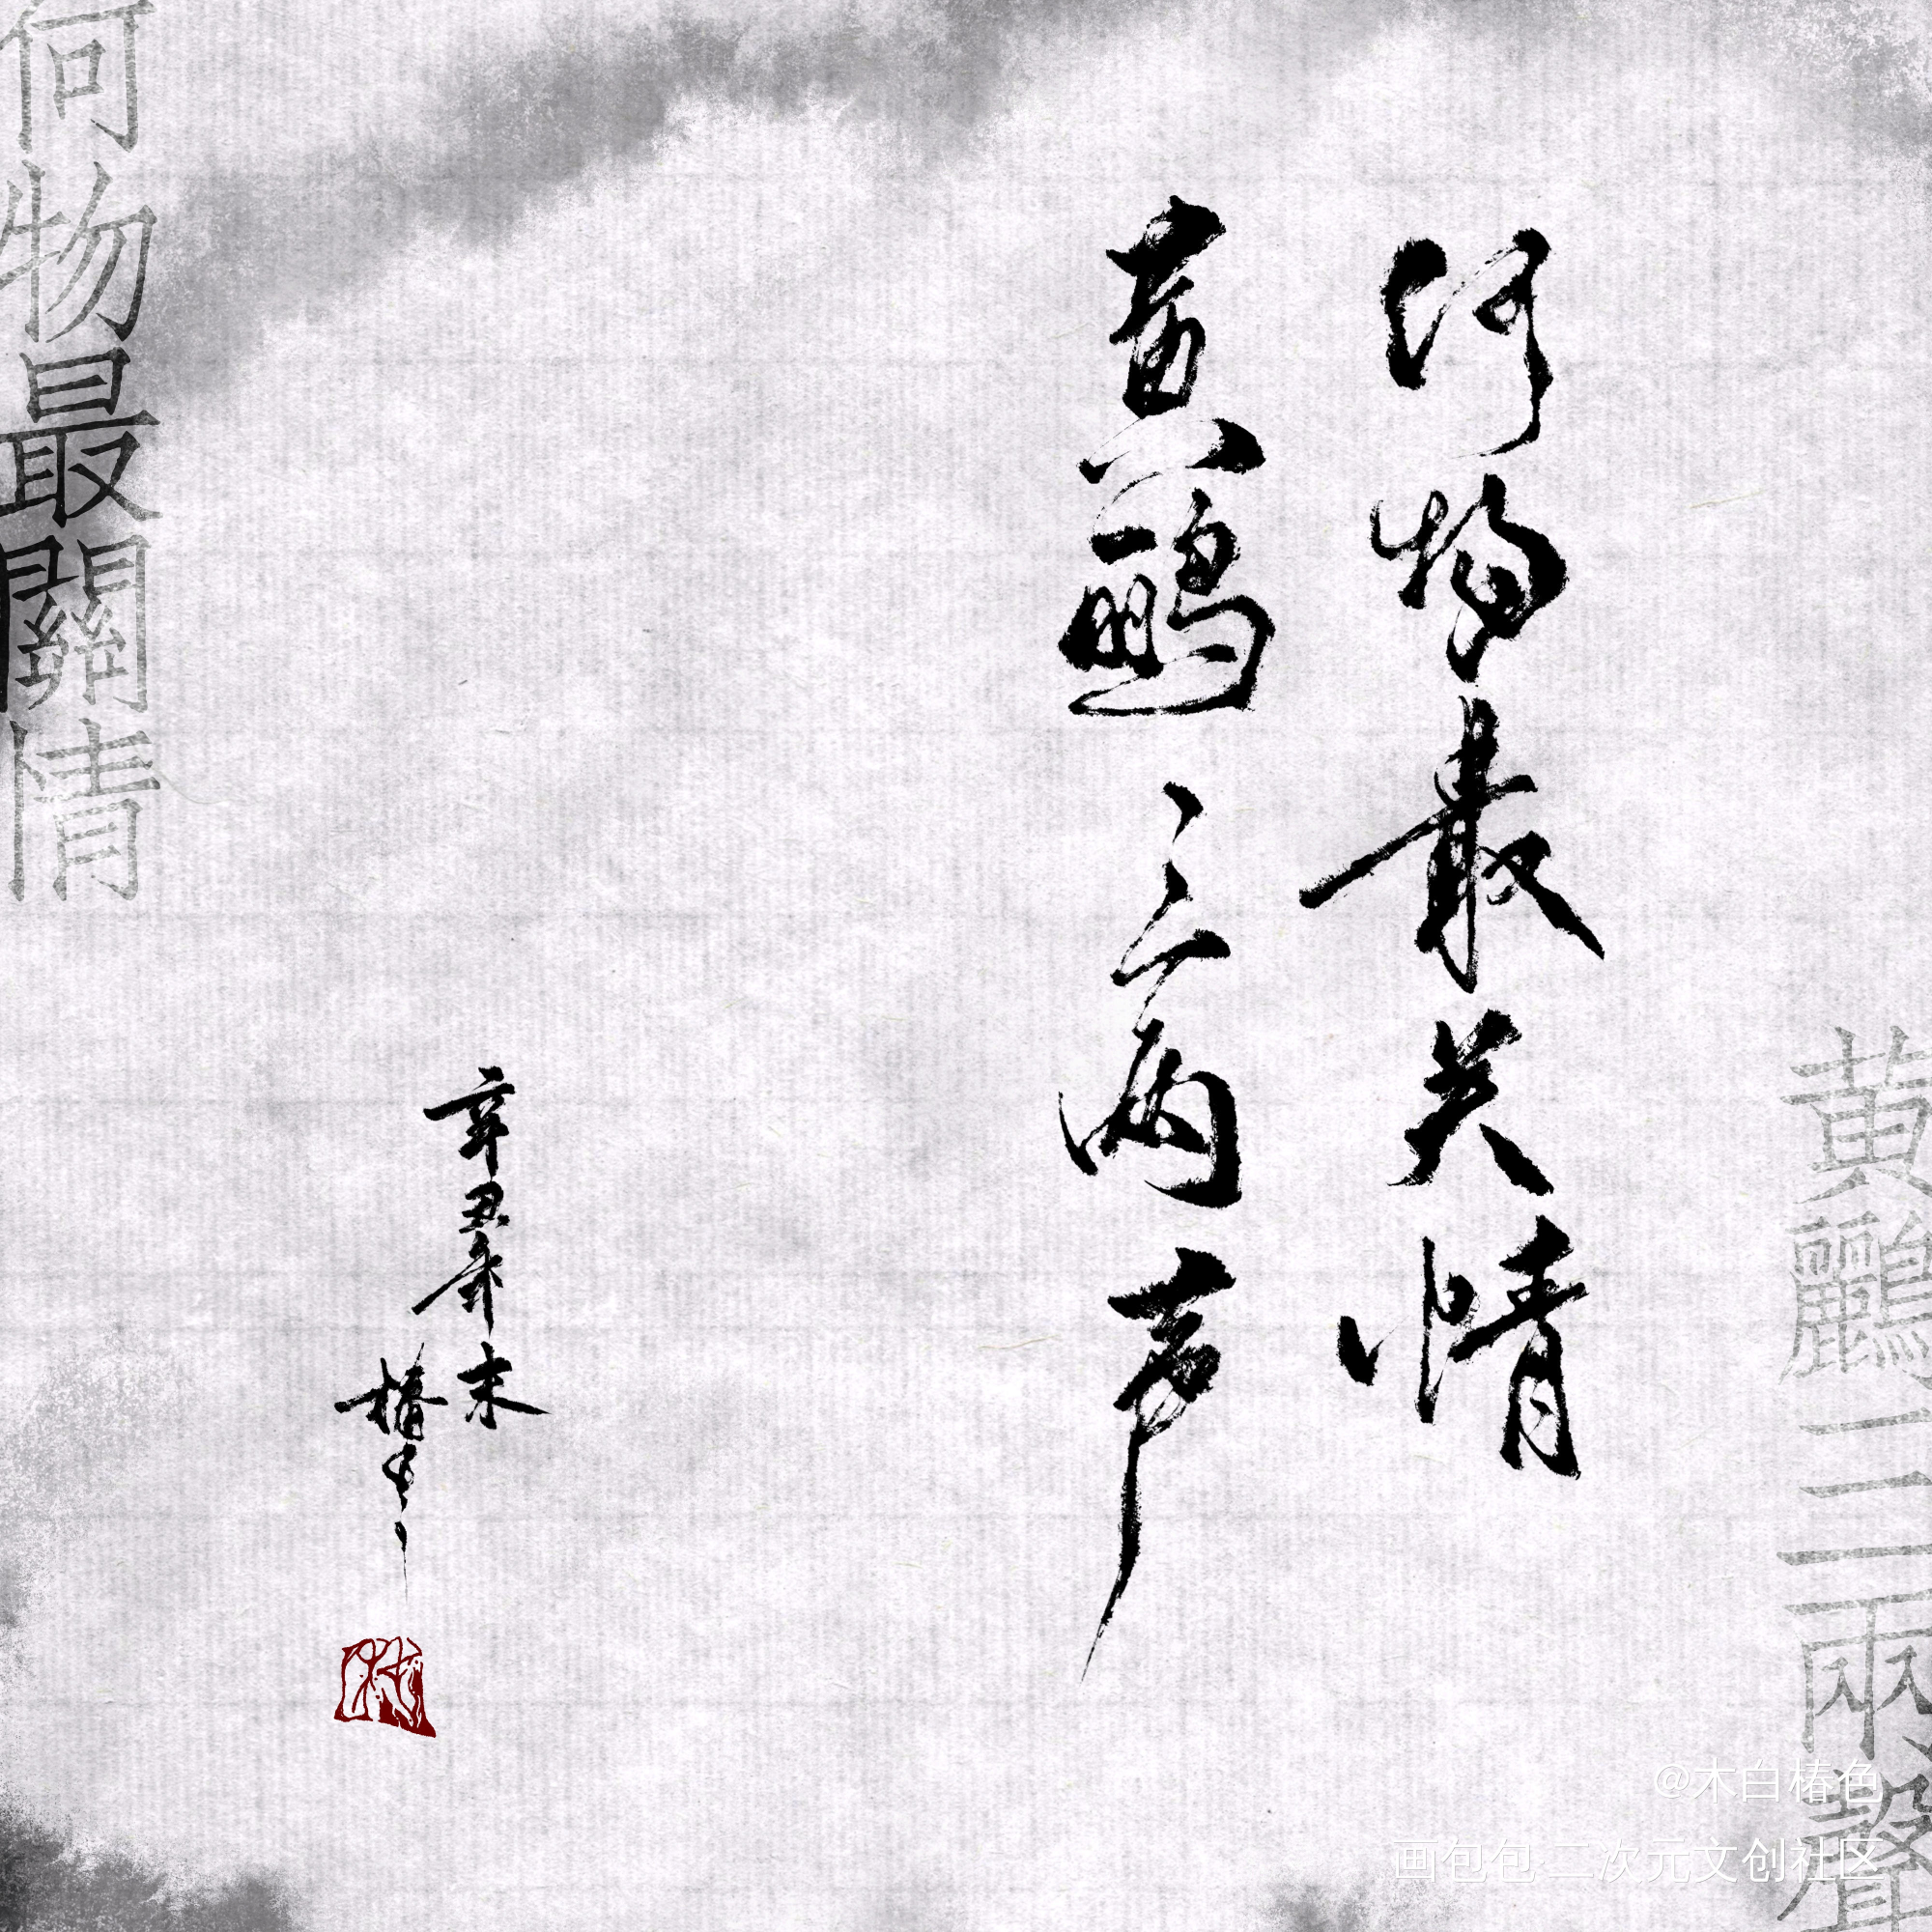 何物最关情
黄鹂三两声
辛丑年末
椿
何物最關情
黃鸝三兩聲
@木白椿色
画包包 二次元文创社区